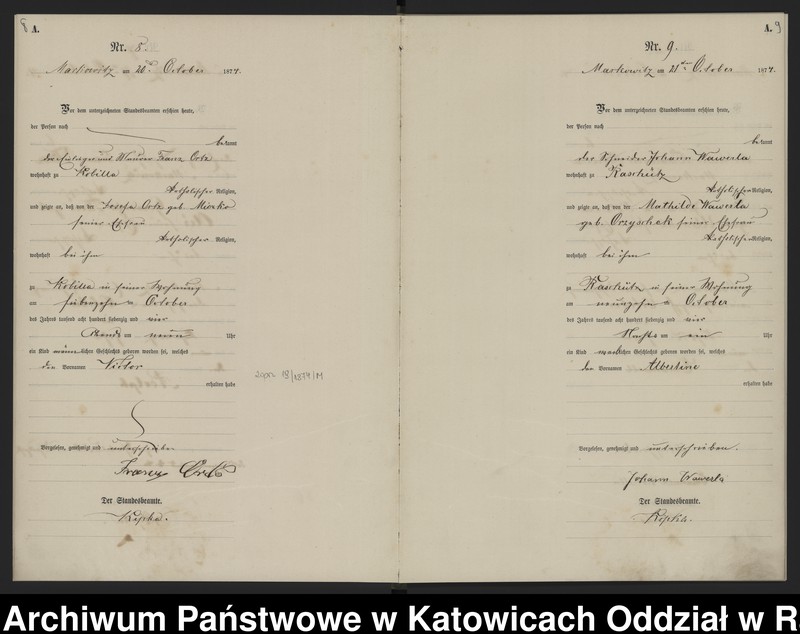 8 A.
Nr. 8.
Markowitz am 20ten October 1874.
Vor dem unterzeichneten Standesbeamten erschien heute,
der Person nach
bekannt
der Einlieger und Maurer Franz Ortz
wohnhaft zu Kobilla
katholischer Religion,
und zeigte an, daß von der Josefa Ortz geb.
seiner Ehefrau
katholischer Religion,
wohnhaft bei ihm
zu Kobilla in seiner Wohnung
am siebenzehn ten October
des Jahres tausend acht hundert siebenzig und vier
Abends um neun Uhr
ein Kind männlichen Geschlechts geboren worden sei, welches
den Vornamen Victor
erhalten habe
18/1874/M
Vorgelesen, genehmigt und unterschrieben
Franz
Der Standesbeamte.
Kipka.
A. 9
Nr. 9.
Markowitz am 21ten October 1874.
Vor dem unterzeichneten Standesbeamten erschien heute,
der Person nach
bekannt
der Schneider Johann Wawerla
wohnhaft zu Raschütz
katholischer Religion,
und zeigte an, daß von der Mathilde Wawerla
geb. Orzyschek seiner Ehefrau
katholischer Religion,
wohnhaft bei ihm
zu Raschütz in seiner Wohnung
am neunzehn ten October
des Jahres tausend acht hundert siebenzig und vier
Nachts um ein Uhr
ein Kind weiblichen Geschlechts geboren worden sei, welches
den Vornamen Albertine
erhalten habe
Vorgelesen, genehmigt und unterschrieben.
Johann Wawerla
Der Standesbeamte.
Kipka.
Archiwum Państwowe w Katowicach Oddział w Ra